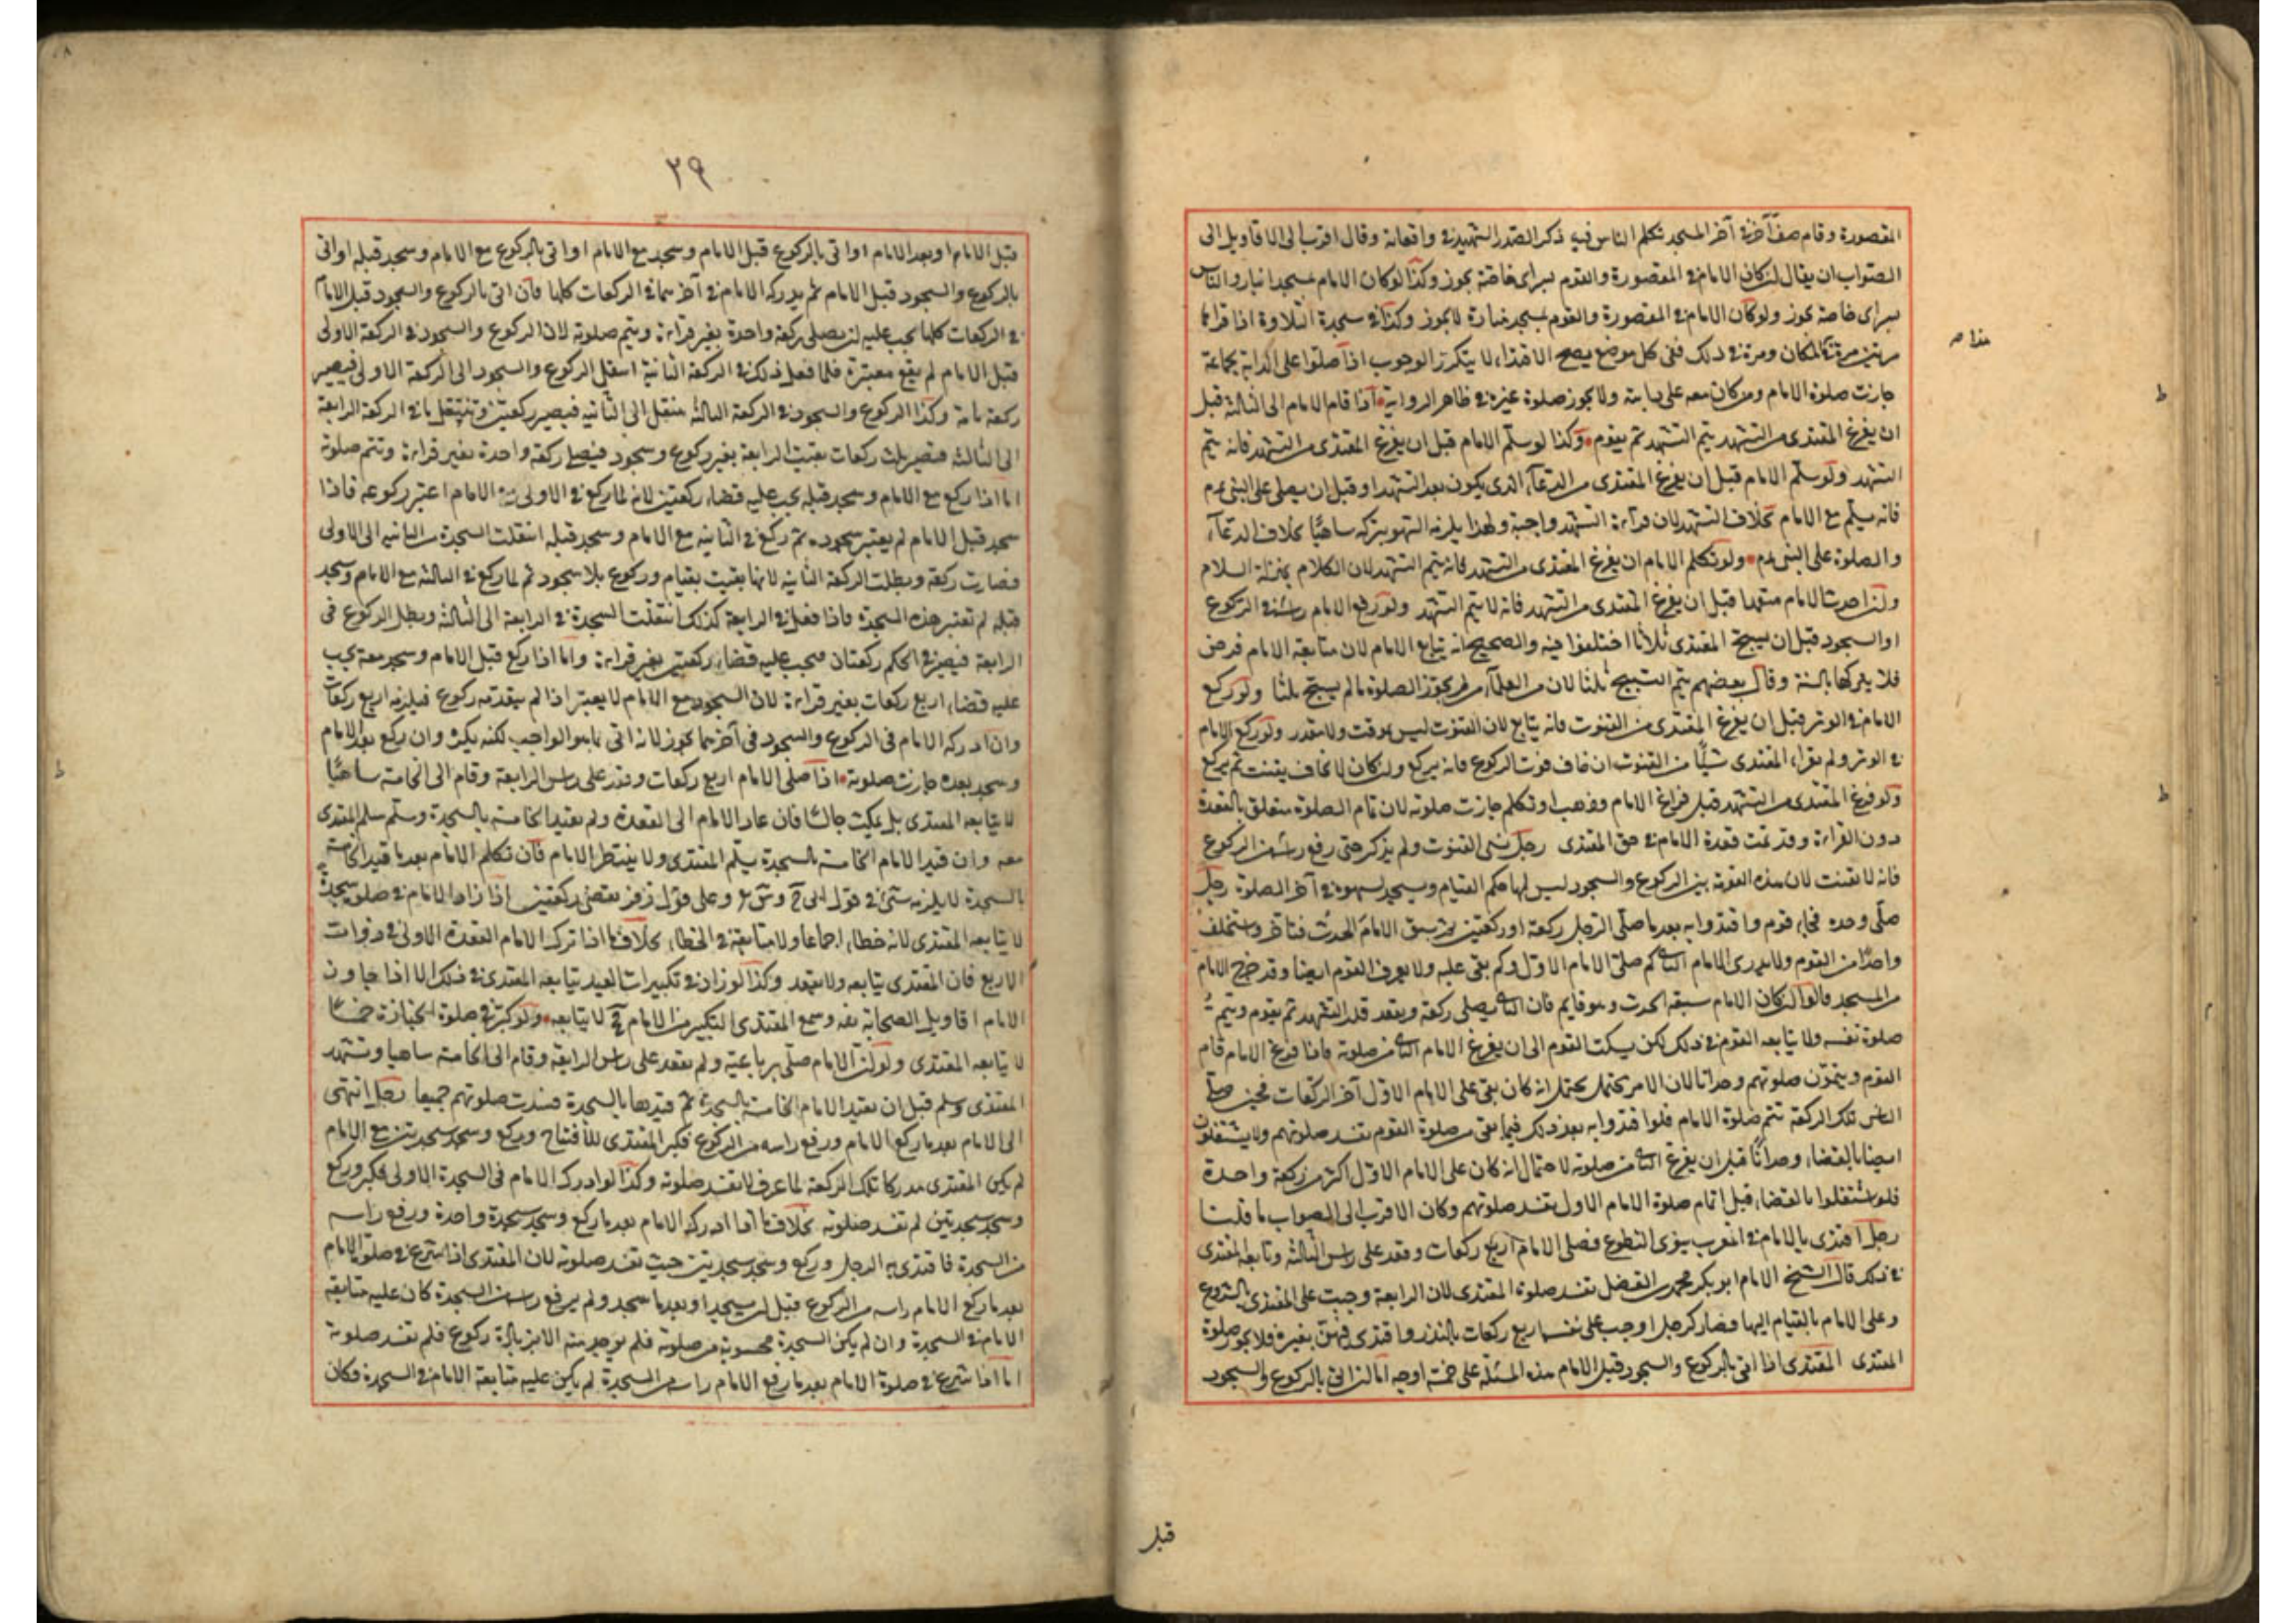 المقصورة وقام صف آخر في آخر المسجد تكلم الناس فيه ذكر الصدر الشهيد في واقعاته وقال اقرب الى الاقاويل الى
الصواب ان يقال ان كان الامام في المقصورة والقوم خاصة يجوز وكذا لو كان الامام والناس
خاصة يجوز ولو كان الامام في المقصورة والقوم لا يجوز وكذا في سجدة التلاوة اذا قراها
مرتين مرة في المكان ومرة في ذلك ففي كل موضع يصح الاقتداء لا يتكرر الوجوب اذا صلوا على الدابة بجماعة
هذا ص
جازت صلوة الامام ومن كان معه على دابته ولا يجوز صلوة غيره في ظاهر الرواية اذا قام الامام الى الثالثة قبل
ان يفرغ المقتدى من التشهد يتم التشهد ثم يقوم وكذا لو سلم الامام قبل ان يفرغ المقتدى من التشهد فانه يتم
التشهد ولو سلم الامام قبل ان يفرغ المقتدى من الدعاء الذى يكون بعد التشهد او قبل ان يصلى على النبى عم
فانه يسلم مع الامام بخلاف التشهد لان قراءة التشهد واجبة ولهذا يلزمه السهو بتركه ساهيا بخلاف الدعاء
والصلوة على النبى عم ولو تكلم الامام ان يفرغ المقتدى من التشهد فانه يتم التشهد لان الكلام بمنزلة السلام
ولئن احدث الامام متعمدا قبل ان يفرغ المقتدى من التشهد فانه لا يتم التشهد ولو رفع الامام راسه في الركوع
او السجود قبل ان يسبح المقتدى ثلاثا اختلفوا فيه والصحيح انه يتابع الامام لان متابعة الامام فرض
فلا يتركها بالسنة وقال بعضهم يتم التسبيح ثلثا لان من العلماء من لم يجوز الصلوة ما لم يسبح ثلثا ولو ركع
الامام في الوتر قبل ان يفرغ المقتدى من القنوت فانه يتابع لان القنوت ليس بموقت ولا مقدر ولو ركع الامام
في الوتر ولم يقراء المقتدى شيئا من القنوت ان خاف فوت الركوع فانه يركع وان كان لا يخاف يقنت ثم يركع
ولو فرغ المقتدى من التشهد قبل فراغ الامام وذهب او تكلم جازت صلوته لان تمام الصلوة متعلق بالقعدة
دون القراءة وقد تمت قعدة الامام في حق المقتدى رجل نسى القنوت ولم يذكر حتى رفع راسه من الركوع
فانه لا يقنت لان هذه القومة بين الركوع والسجود ليس لها حكم القيام ويسجد لسهوه في آخر الصلوة رجل
صلى وحده فجاء قوم واقتدوا به بعد ما صلى الرجل ركعة او ركعتين ثم سبق الامام الحدث فتاخر واستخلف
واحدا من القوم ولا يدرى الامام الثانى كم صلى الامام الاول وكم بقى عليه ولا يعرف القوم ايضا وقد خرج الامام
من المسجد قالوا ان كان الامام سبقه الحدث وهو قايم فان الثانى يصلى ركعة ويقعد قدر التشهد ثم يقوم ويتم
صلوة نفسه ولا يتابعه القوم في ذلك لكن يسكت القوم الى ان يفرغ الامام الثانى من صلوته فاذا فرغ الامام قام
القوم ويتمون صلوتهم وحدانا لان الامر محتمل يحتمل انه كان بقى على الامام الاول آخر الركعات فحين صلى
الثانى تلك الركعة تتم صلوة الامام فلو اقتدوا به بعد ذلك فيما بقى من صلوة القوم تفسد صلوتهم ولا يشتغلون
ايضا بالقضاء وحدانا قبل ان يفرغ الثانى من صلوته لاحتمال انه كان على الامام الاول اكثر من ركعة واحدة
فلو اشتغلوا بالقضاء قبل اتمام صلوة الامام الاول تفسد صلوتهم وكان الاقرب الى الصواب ما قلنا
رجل اقتدى بالامام في المغرب ينوى التطوع فصلى الامام اربع ركعات وقعد على راس الثالثة وتابعه المقتدى
في ذلك قال الشيخ الامام ابو بكر محمد بن الفضل تفسد صلوة المقتدى لان الرابعة وجبت على المقتدى بالشروع
وعلى الامام بالقيام اليها فصار كرجل اوجب على نفسه اربع ركعات بالنذر واقتدى فيهن بغيره فلا يجوز صلوة
المقتدى المقتدى اذا اتى بالركوع والسجود قبل الامام هذه المسئلة على خمسة اوجه اما ان اتى بالركوع والسجود
قبل
٢٩
قبل الامام او بعد الامام او اتى بالركوع قبل الامام وسجد مع الامام او اتى بالركوع مع الامام وسجد قبله او اتى
بالركوع والسجود قبل الامام ثم يدركه الامام في آخرهما في الركعات كلها فان اتى بالركوع والسجود قبل الامام
في الركعات كلها يجب عليه ان يصلى ركعة واحدة بغير قراءة ويتم صلوته لان الركوع والسجود في الركعة الاولى
قبل الامام لم يقع معتبرة فلما فعل ذلك في الركعة الثانية انتقل الركوع والسجود الى الركعة الاولى فيصير
ركعة تامة وكذا الركوع والسجود في الركعة الثالثة منتقل الى الثانية فيصير ركعتين وتنتقل ما في الركعة الرابعة
الى الثالثة فتصير ثلث ركعات بقيت الرابعة بغير ركوع وسجود فيصلى ركعة واحدة بغير قراءة وتتم صلوته
اما اذا ركع مع الامام وسجد قبله يجب عليه قضاء ركعتين لانه لما ركع في الاولى مع الامام اعتبر ركوعه فاذا
سجد قبل الامام لم يعتبر سجوده ثم ركع في الثانية مع الامام وسجد قبله انتقلت السجدة من الثانية الى الاولى
فصارت ركعة وبطلت الركعة الثانية لانها بقيت بقيام وركوع بلا سجود ثم لما ركع في الثالثة مع الامام وسجد
قبله لم تعتبر هذه السجدة فاذا فعل في الرابعة كذلك انتقلت السجدة في الرابعة الى الثالثة وبطل الركوع فى
الرابعة فيصير في الحكم ركعتان فيجب عليه قضاء ركعتين بغير قراءة واما اذا ركع قبل الامام وسجد معه يجب
عليه قضاء اربع ركعات بغير قراءة لان السجود مع الامام لا يعتبر اذا لم يتقدمه ركوع فيلزمه اربع ركعات
وان ادركه الامام فى الركوع والسجود فى آخرهما يجوز لانه اتى بما هو الواجب لكنه يكره وان ركع بعد الامام
وسجد بعده جازت صلوته اذا صلى الامام اربع ركعات وقعد على راس الرابعة وقام الى الخامسة ساهيا
لا يتابعه المقتدى بل يمكث جالسا فان عاد الامام الى القعدة ولم يقيد الخامسة بالسجدة وسلم سلم المقتدى
معه وان قيد الامام الخامسة بالسجدة يسلم المقتدى ولا ينتظر الامام فان تكلم الامام بعد ما قيد الخامسة
بالسجدة لا يلزمه شىء في قول ابى ح وعلى قول زفر يقضى ركعتين اذا زاد الامام في صلوته سجدة
لا يتابعه المقتدى لانه خطاء اجماعا ولا متابعة في الخطاء بخلاف ما اذا ترك الامام القعدة الاولى في ذوات
الاربع فان المقتدى يتابعه ولا يقعد وكذا لو زاد في تكبيرات العيد يتابعه المقتدى في ذلك الا اذا جاوز
الامام اقاويل الصحابة وسمع المقتدى التكبير من الامام ح لا يتابعه ولو كبر في صلوة الجنازة خمسا
لا يتابعه المقتدى ولو ان الامام صلى برباعية ولم يقعد على راس الرابعة وقام الى الخامسة ساهيا وتشهد
المقتدى وسلم قبل ان يقيد الامام الخامسة بالسجدة ثم قيدها بالسجدة فسدت صلوتهم جميعا رجل انتهى
الى الامام بعد ما ركع الامام ورفع راسه من الركوع فكبر المقتدى للافتتاح وركع وسجد سجدتين مع الامام
لم يكن المقتدى مدركا تلك الركعة لما عرف لا تفسد صلوته وكذا لو ادركه الامام فى السجدة الاولى فكبر وركع
وسجد سجدتين لم تفسد صلوته بخلاف ما اذا ادركه الامام بعد ما ركع وسجد سجدة واحدة ورفع راسه
من السجدة فاقتدى به الرجل وركع وسجد سجدتين حيث تفسد صلوته لان المقتدى اذا شرع في صلوة الامام
بعد ما ركع الامام راسه من الركوع قبل ان يسجد او بعد ما سجد ولم يرفع راسه من السجدة كان عليه متابعة
الامام في السجدة وان لم يكن السجدة محسوبة من صلوته فلم يوجد منه الا زيادة ركوع فلم تفسد صلوته
اما اذا شرع في صلوة الامام بعد ما رفع الامام راسه من السجدة لم يكن عليه متابعة الامام في السجدة فكان